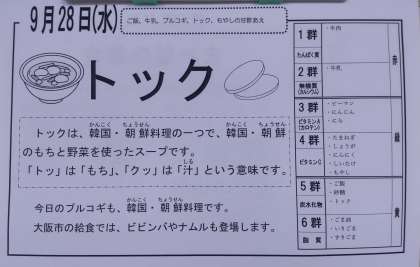 9月28日(水)
ご飯、牛乳、プルコギ、トック、もやしの甘酢あえ
トック
トックは、韓国・朝鮮料理の一つで、韓国・朝鮮
のもちと野菜を使ったスープです。
「トッ」は「もち」、「クッ」は「汁」という意味です。
今日のプルコギも、韓国・朝鮮料理です。
大阪市の給食では、ビビンバやナムルも登場します。
1群
たんぱく質
・牛肉
2群
無機質
(カルシウム)
・牛乳
3群
ビタミンA
(カロテン)
・ピーマン
・にんじん
・にら
4群
ビタミンC
・たまねぎ
・しょうが
・にんにく
・しいたけ
・もやし
5群
炭水化物
・ご飯
・砂糖
・トック
6群
脂質
・ごま油
・いりごま
・すりごま